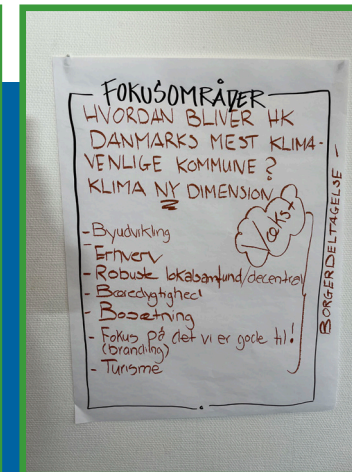 FOKUSOMRÅDER
HVORDAN BLIVER HK
DANMARKS MEST KLIMA-
VENLIGE KOMMUNE?
KLIMA NY DIMENSION
Vækst
- Byudvikling
- Erhverv
- Robuste lokalsamfund/decentral
- Bæredygtighed
- Bosætning
- Fokus på det vi er gode til!
(branding)
- Turisme
BORGERDELTAGELSE -